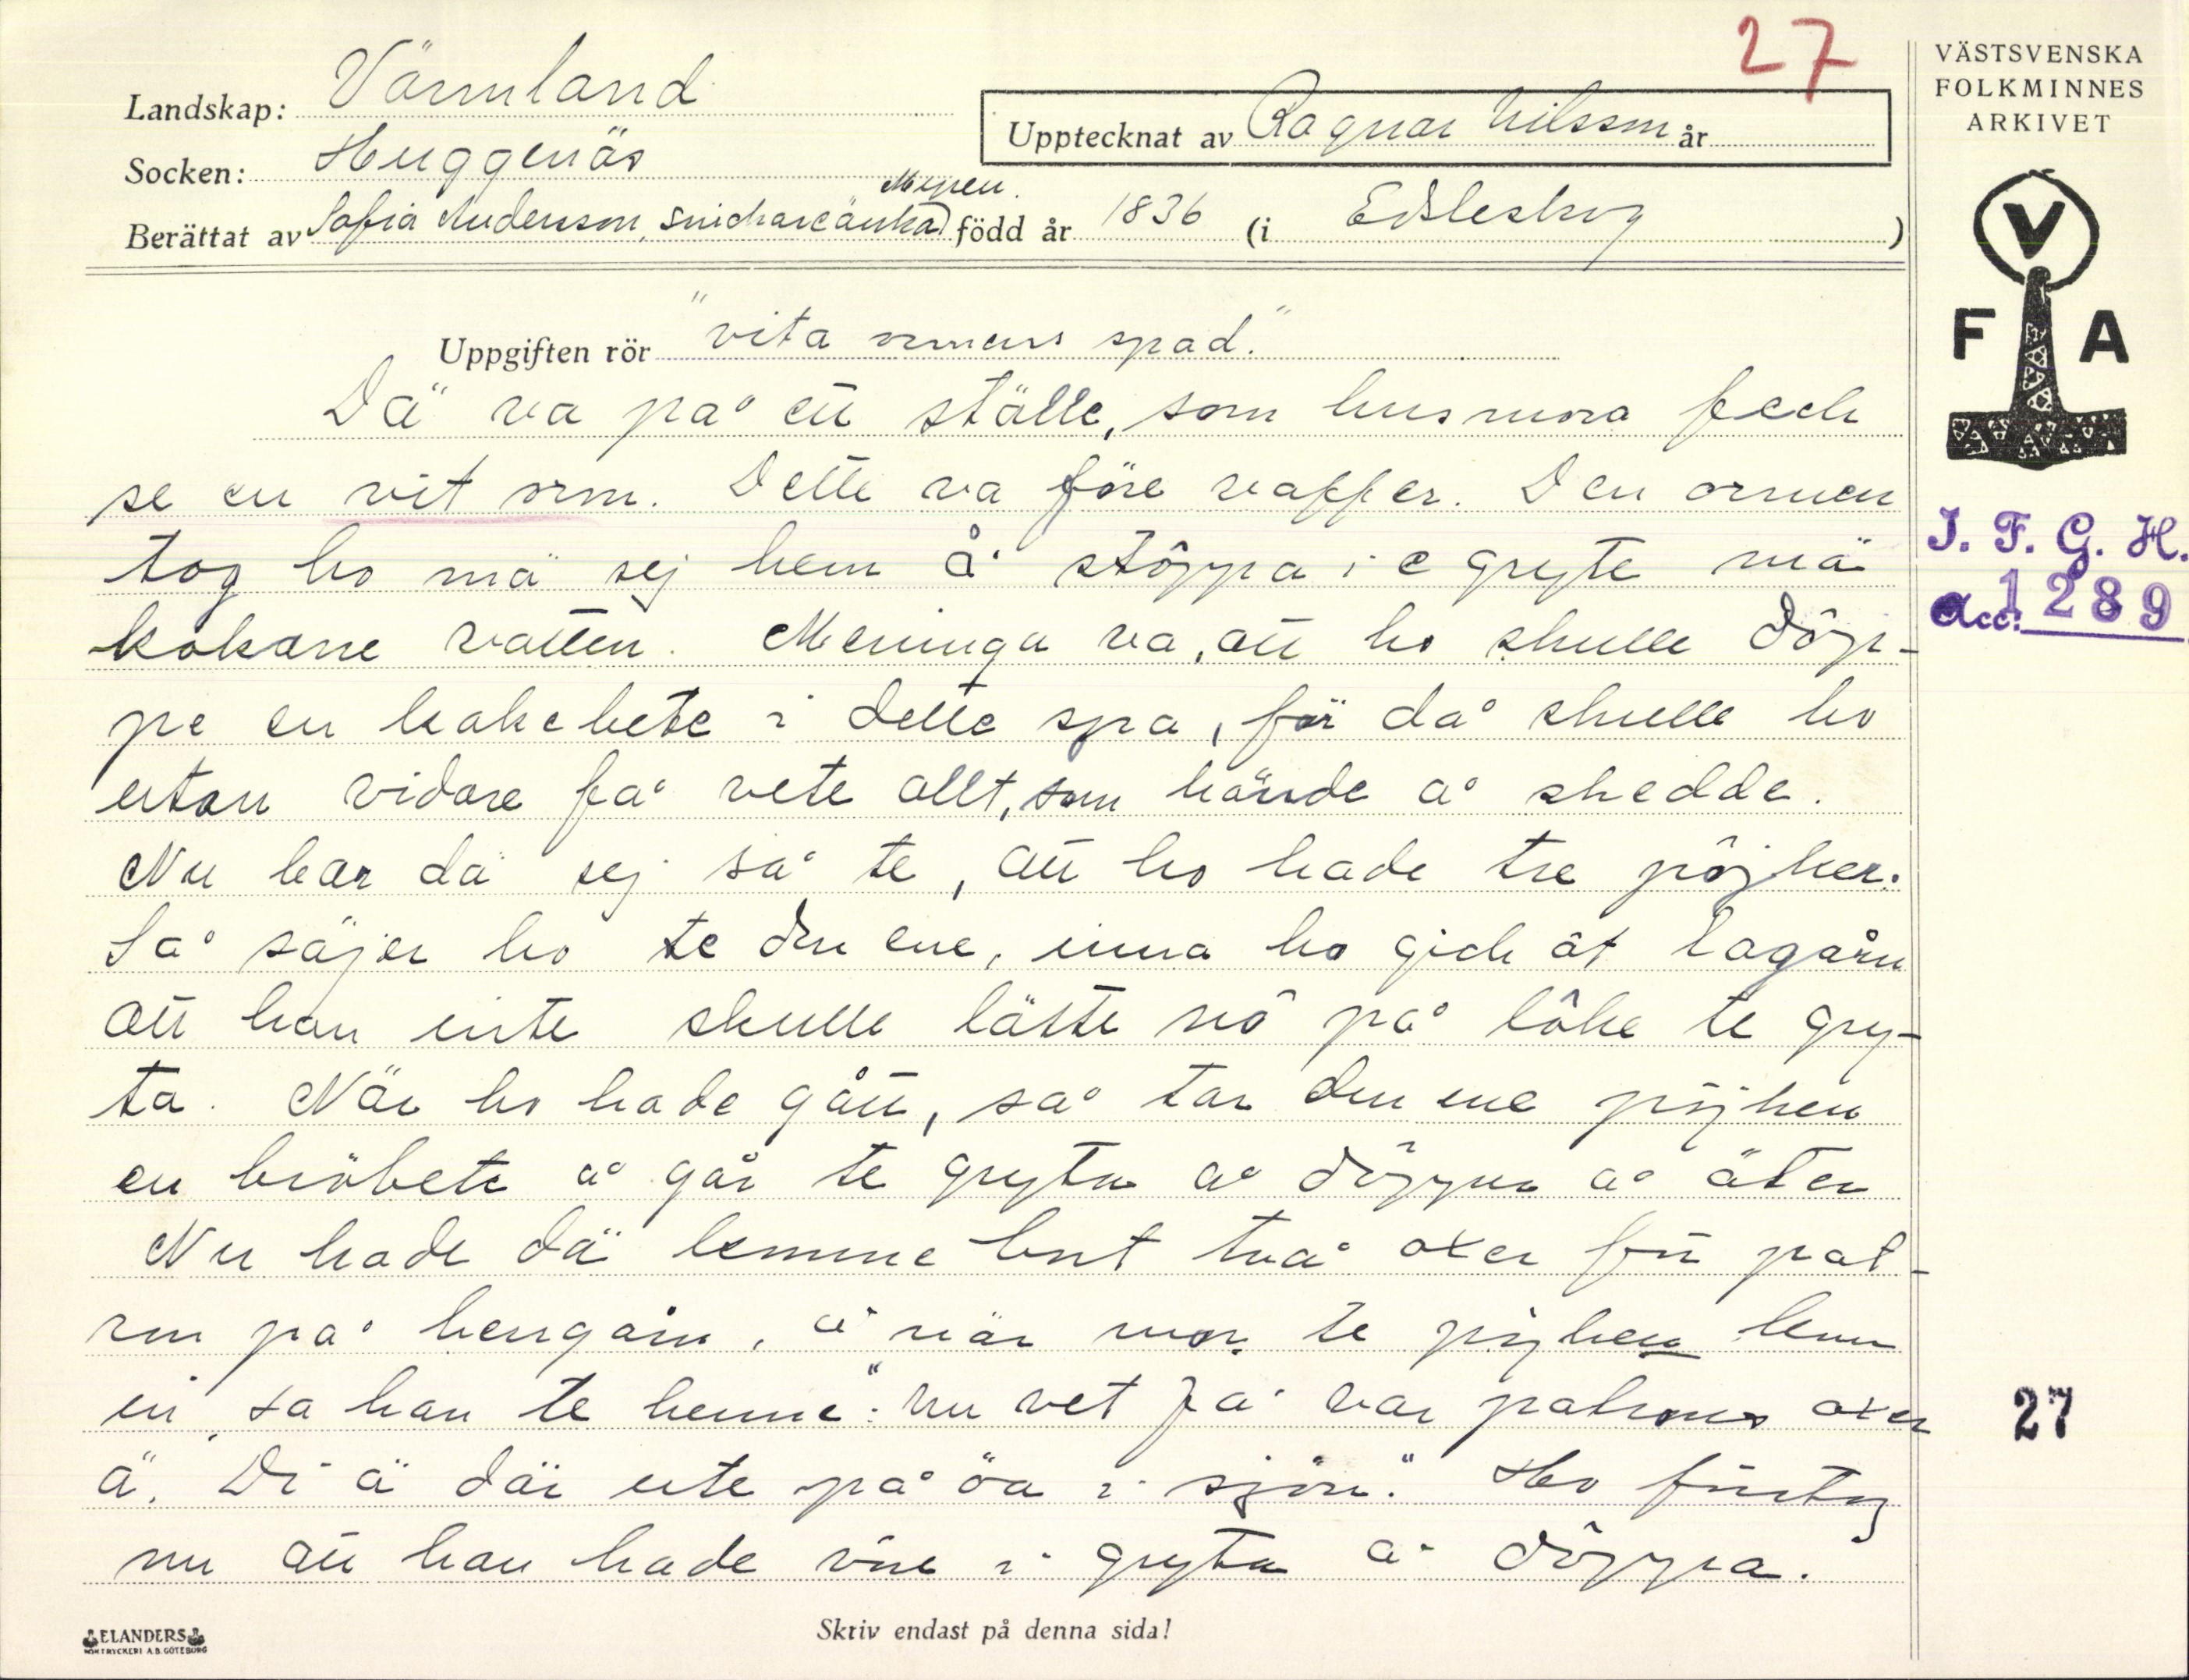 27
VÄSTSVENSKA
FOLKMINNES
ARKIVET
Landskap: Värmland
Upptecknat av Ragnar Nilsson år
Socken: Huggenäs
Mynen.
Berättat av Sofia Andersson, snickareänka) född år 1836 (i Edsleskog )
V
F A
Uppgiften rör "vita ormens spad."
Dä va på ett ställe, som husmora feck
se en vit orm. Dette va före vaffer. Den ormen
tog ho mä sej hem å stôppa i e gryte mä
kokane vatten. Meninga va, att ho skulle dôp-
pe en kakebete i dette spa, för då skulle ho
utan vidare få vete allt, som hände å skedde.
Nu bar dä sej så te, att ho hade tre pôjker.
Så säjer ho te den ene, inna ho gick åt lagårn
att han inte skulle lätte nô på lôke te gry-
ta. När ho hade gått, så tar den ene pôjken
en brôbete å går te gryta å dôpper å äter
Nu hade dä kemme bort två oxer för pat-
ron på hergårn, å när mor te pôjken kom
in, sa han te henne: "Nu vet ja var patrons oxer
ä. Di ä där ute på öa i sjön." Ho förstog
nu att han hade vöre i gryta å dôppa.
J. F. G. H.
Acc: 1289
27
ELANDERS
BOKTRYCKERI A.B. GÖTEBORG
Skriv endast på denna sida!